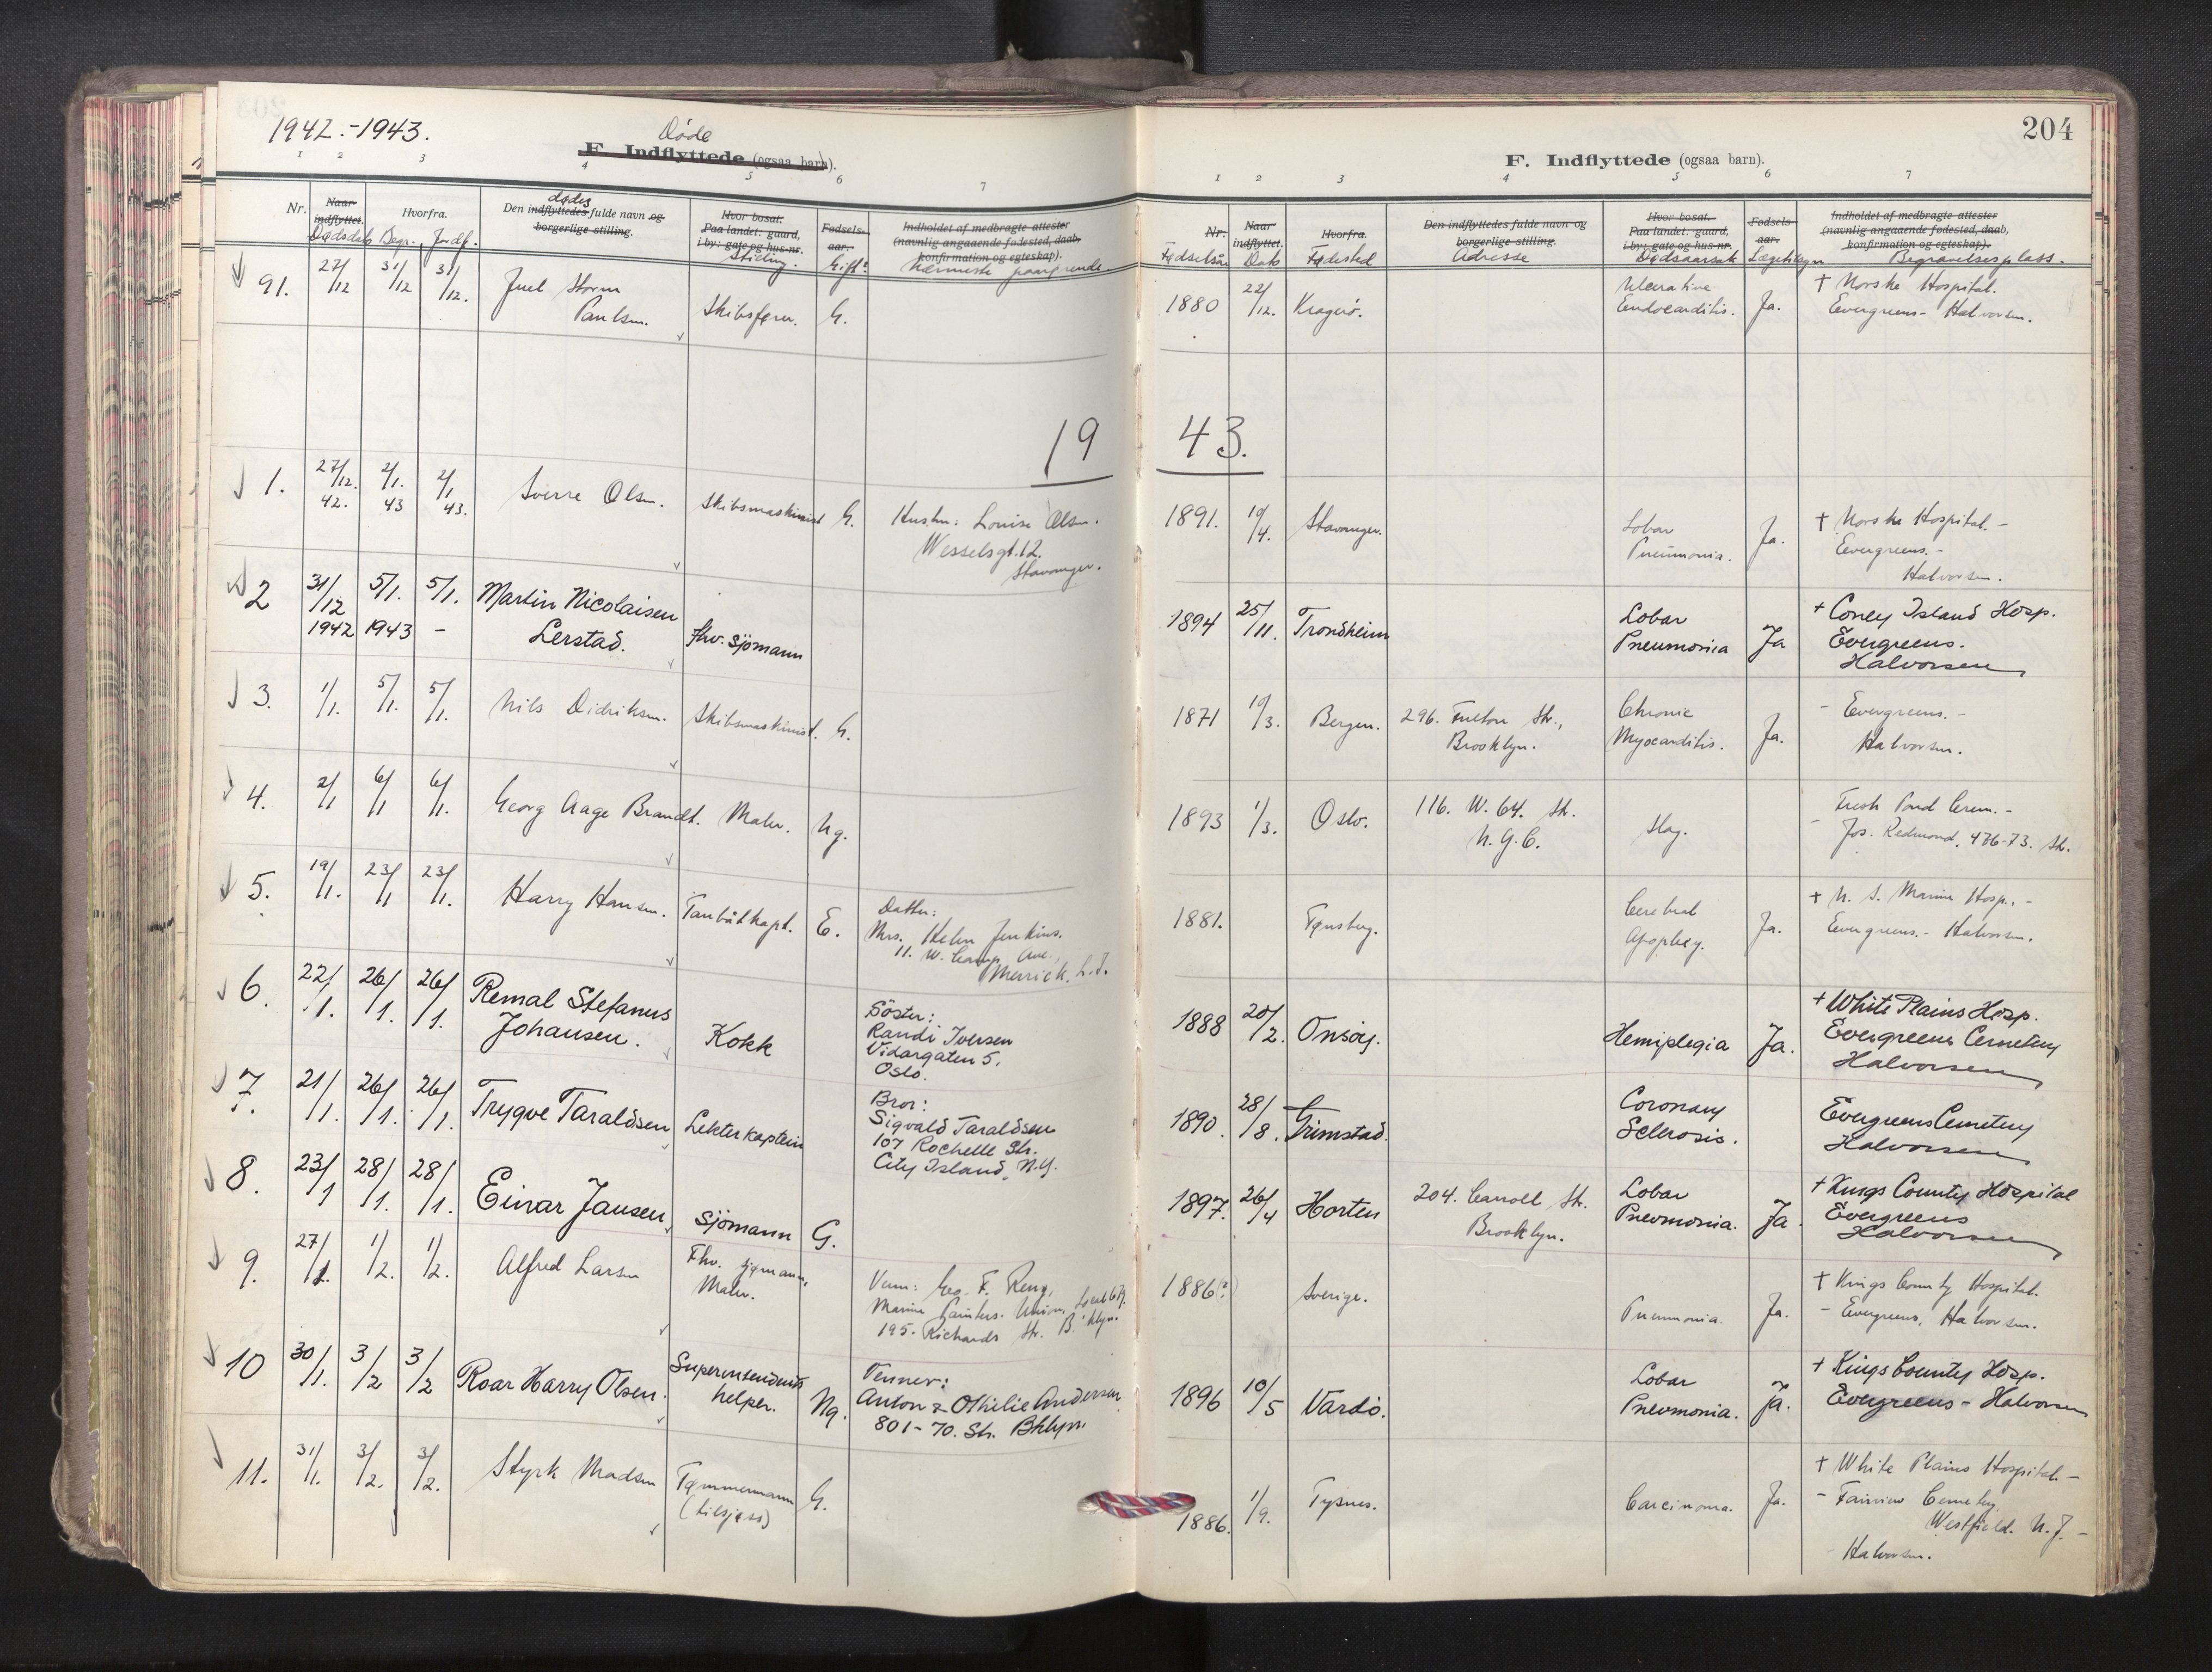 1942.-1943.
Døde
F. Indflyttede (ogsaa barn).
1 2 3 4 5 6 7
Nr.
Naar indflyttet.
Dødsdato
Hvorfra.
Begr. Jordf.
dødes
Den indflyttedes fulde navn og
borgerlige stilling.
Hvor bosat.
Paa landet: gaard,
i by: gate og hus-nr.
Stilling.
Fødsels-
aar.
Gift?
Indholdet af medbragte attester
(navnlig angaaende fødested, daab,
konfirmation og egteskap).
Nærmeste paarørende.
91. 27/12 31/12 31/12. Juel Storm
Paulsen. Skibsfører. G.
19
1. 27/12. 42. 2/1. 43 2/1 43. Sverre Olsen. Skibsmaskinist G. Hustru: Louise Olsen.
Wesselsgt. 12.
Stavanger.
2 31/12 1942 5/1. 1943 5/1. - Martin Nicolaisen
Lerstad. fhv. sjömann
3. 1/1. 5/1. 5/1. Nils Didriksen. Skibsmaskinist. G.
4. 2/1 6/1 6/1. Georg Aage Brandt. Maler. Ug.
5. 19/1. 23/1 23/1. Harry Hansen. Taubåtkapt. E. Datter:
Mrs. Helen Jenkins.
11. W. Camp Ave.,
Merrick, L.I.
6. 22/1. 26/1. 26/1. Remal Stefanus
Johansen. Kokk
Söster:
Randi Iversen
Vidargaten 5.
Oslo.
7. 21/1. 26/1. 26/1. Trygve Taraldsen Lekterkaptein
Bror:
Sigvald Taraldsen
107 Rochelle Str.
City Island, N.Y.
8. 23/1 28/1. 28/1. Einar Jansen, sjömann G.
9. 27/1. 1/2. 1/2. Alfred Larsen Fhv. sjømann,
Maler.
Venn: Geo. F. Reng,
Marine Painters. Union, Local
195. Richards Str. B'klyn.
10 30/1. 3/2 3/2 Roar Harry Olsen. Superintendents
helper. Ug.
Venner:
Anton & Othilie Andersen
801-70. Str. Bklyn.
11. 31/1. 3/2. 3/2. Styrk Madsen Tømmermann
(tilsjøss) G.
204
F. Indflyttede (ogsaa barn).
1 2 3 4 5 6 7
Nr.
Fødselsår
Naar
indflyttet.
Dato
Hvorfra.
Fødested
Den indflyttedes fulde navn og
borgerlige stilling.
Adresse
Hvor bosat.
Paa landet: gaard,
i by: gate og hus-nr.
Dødsaarsak
Fødsels-
aar.
Lægetilsyn
Indholdet af medbragte attester
(navnlig angaaende fødested, daab,
konfirmation og egteskap).
Begravelsesplass.
1880 22/12. Kragerø. Ulcerative
Endocarditis. Ja. † Norske Hospital.
Evergreens- Halvorsen.
43.
1891. 10/4. Stavanger. Lobar
Pneumonia. Ja. † Norske Hospital. -
Evergreens. -
Halvorsen.
1894 25/11. Trondheim Lobar
Pneumonia Ja + Coney Island Hosp.
Evergreens.
Halvorsen
1871 10/3. Bergen. 296. Fulton Str.,
Brooklyn. Chronic
Myocarditis. Ja. - Evergreens. -
Halvorsen.
1893 1/3. Oslo. 116. W. 64. St.
N.Y.C. Slag. - Fresh Pond Crem. -
Jos. Redmond, 476-73. St.
1881. Tønsberg. Cerebral
Apoplexy. Ja. + U. S. Marine Hosp., -
Evergreens. - Halvorsen.
1888 20/2. Onsöy. Hemiplegia Ja. + White Plains Hosp.
Evergreens Cemetery
Halvorsen
1890. 28/8. Grimstad. Coronary
Sclerosis. Evergreens Cemetery
Halvorsen
1897. 26/4 Horten 204. Carroll Str.
Brooklyn. Lobar
Pneumonia. Ja. + Kings County Hospital
Evergreens
Halvorsen
1886(?) Sverige. Pneumonia. Ja. † Kings County Hospital.
- Evergreens, Halvorsen.
1896 10/5 Vardö. Lobar
Pneumonia. Ja. + Kings County Hosp.
Evergreens - Halvorsen
1886. 1/9. Tysnes. Carcinoma. Ja. † White Plains Hospital. -
- Fairview Cemetery,
Westfield. N.J. -
- Halvorsen.